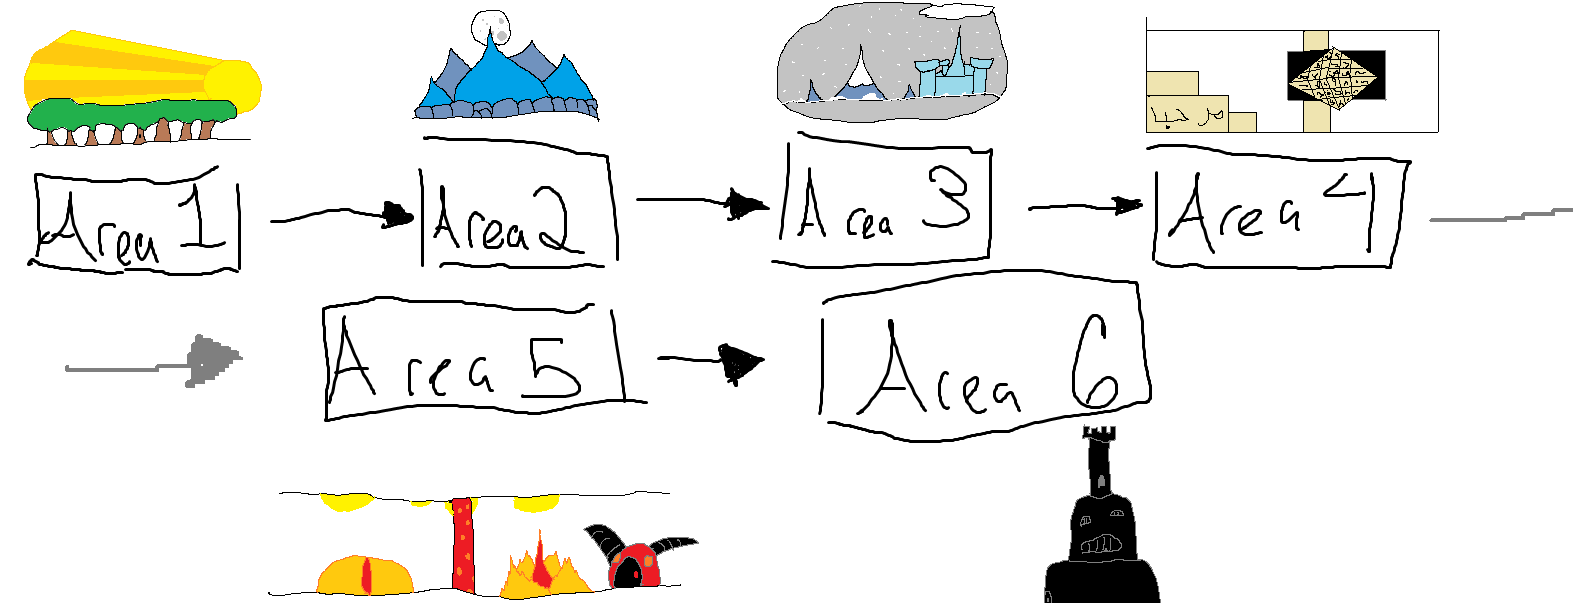 مر حبا
Area 1
Area 2
Area 3
Area 4
Area 5
Area 6